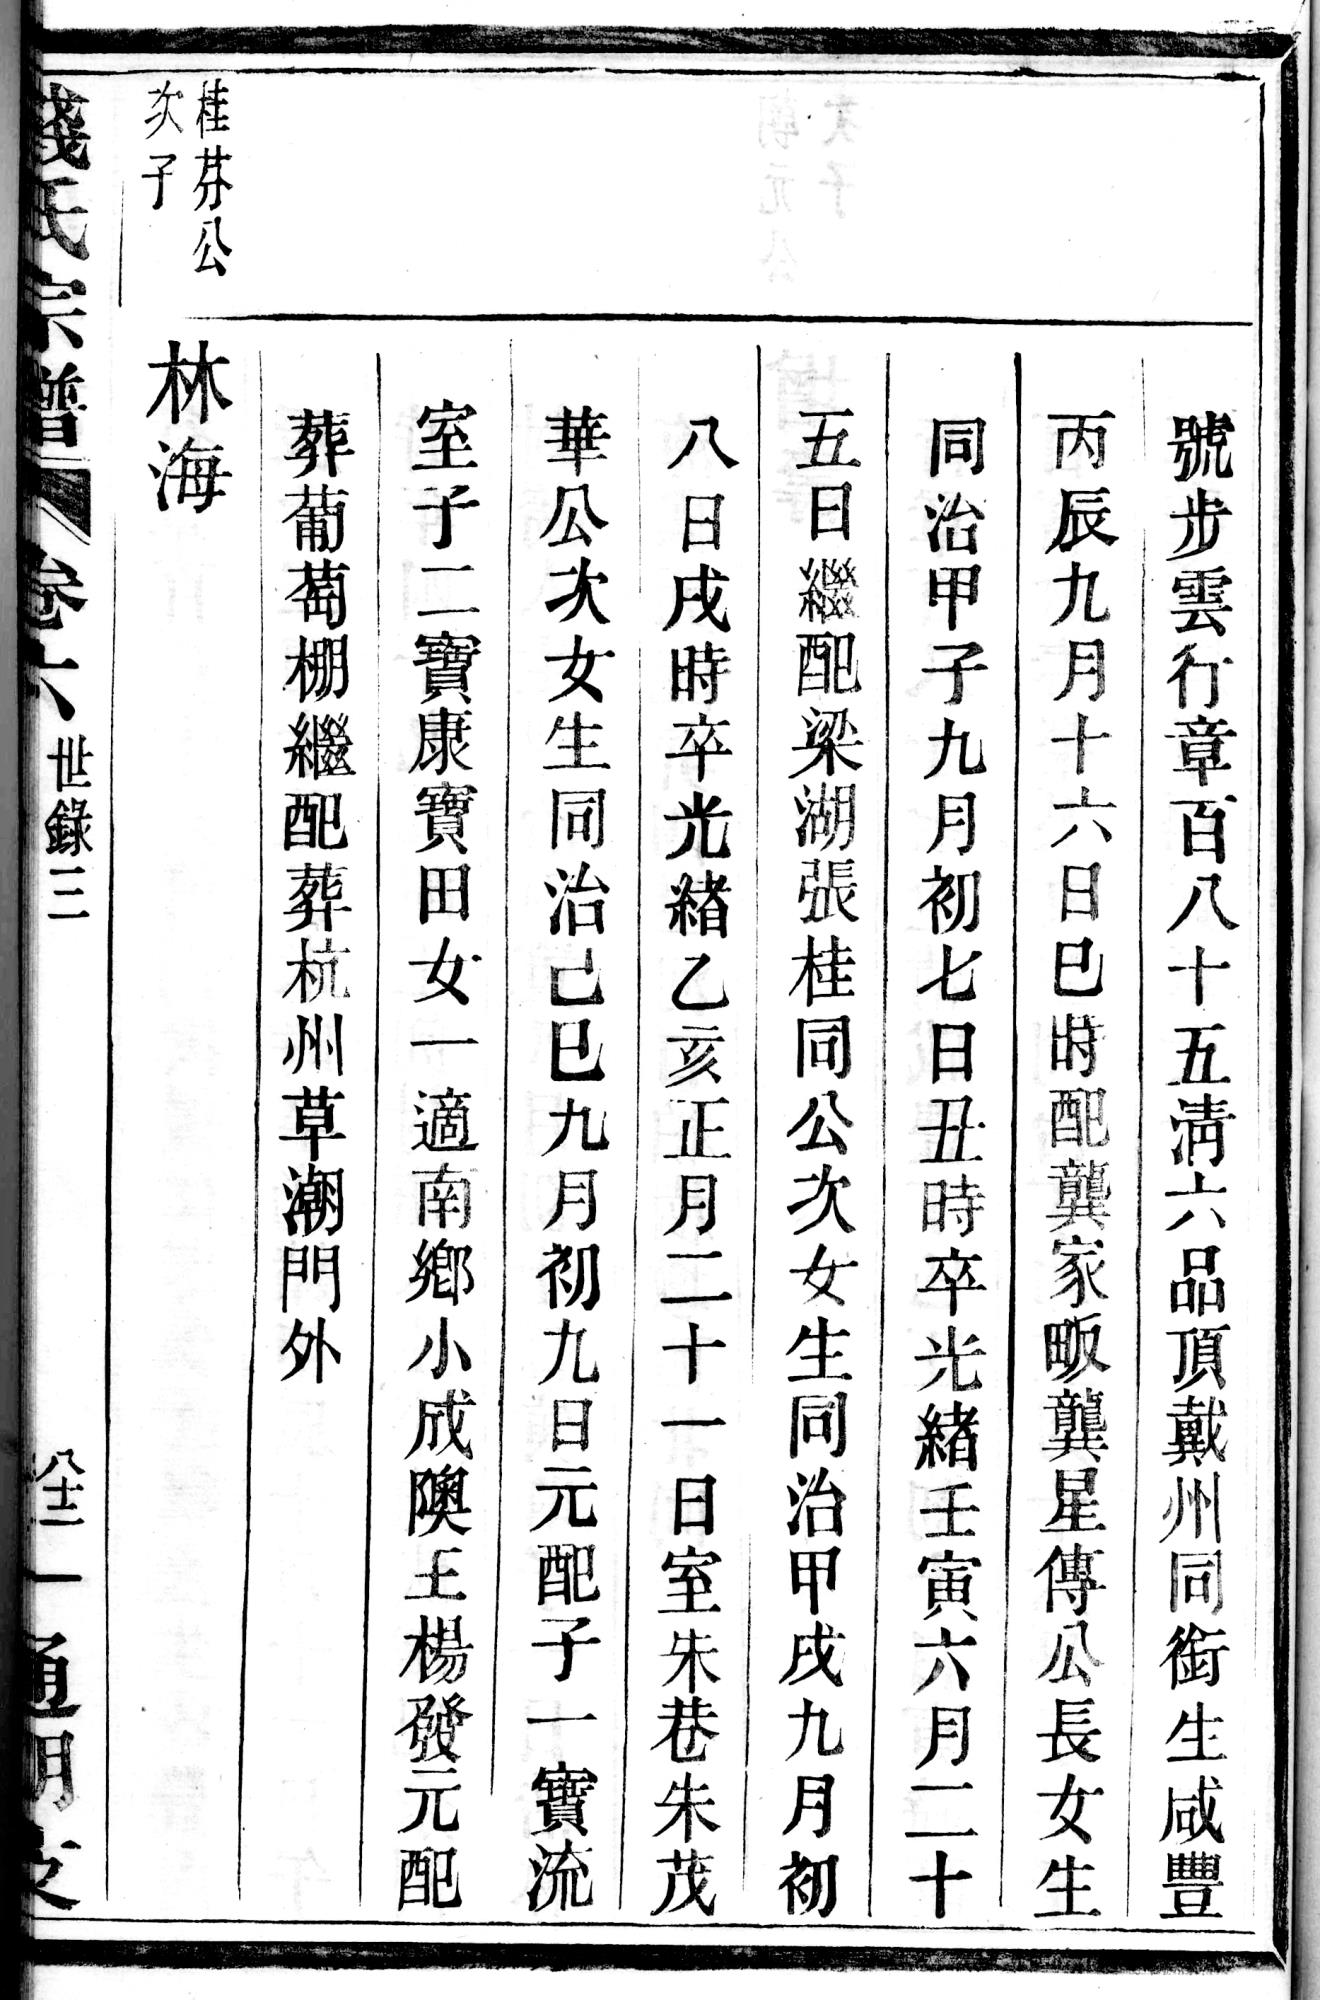 號步雲行章百八十五淸六品頂戴州同銜生咸豐
丙辰九月十六日巳時配龔家畈龔星傳公長女生
同治甲子九月初七日丑時卒光緒壬寅六月二十
五日繼配梁湖張桂同公次女生同治甲戌九月初
八日戌時卒光緒乙亥正月二十一日室朱巷朱茂
華公次女生同治己巳九月初九日元配子一寶流
室子二寶康寶田女一適南鄉小成隩王楊發元配
葬葡萄棚繼配葬杭州草潮門外
桂芬公
次子
林海
錢氏宗譜
卷六
世錄三
八十二
通明支